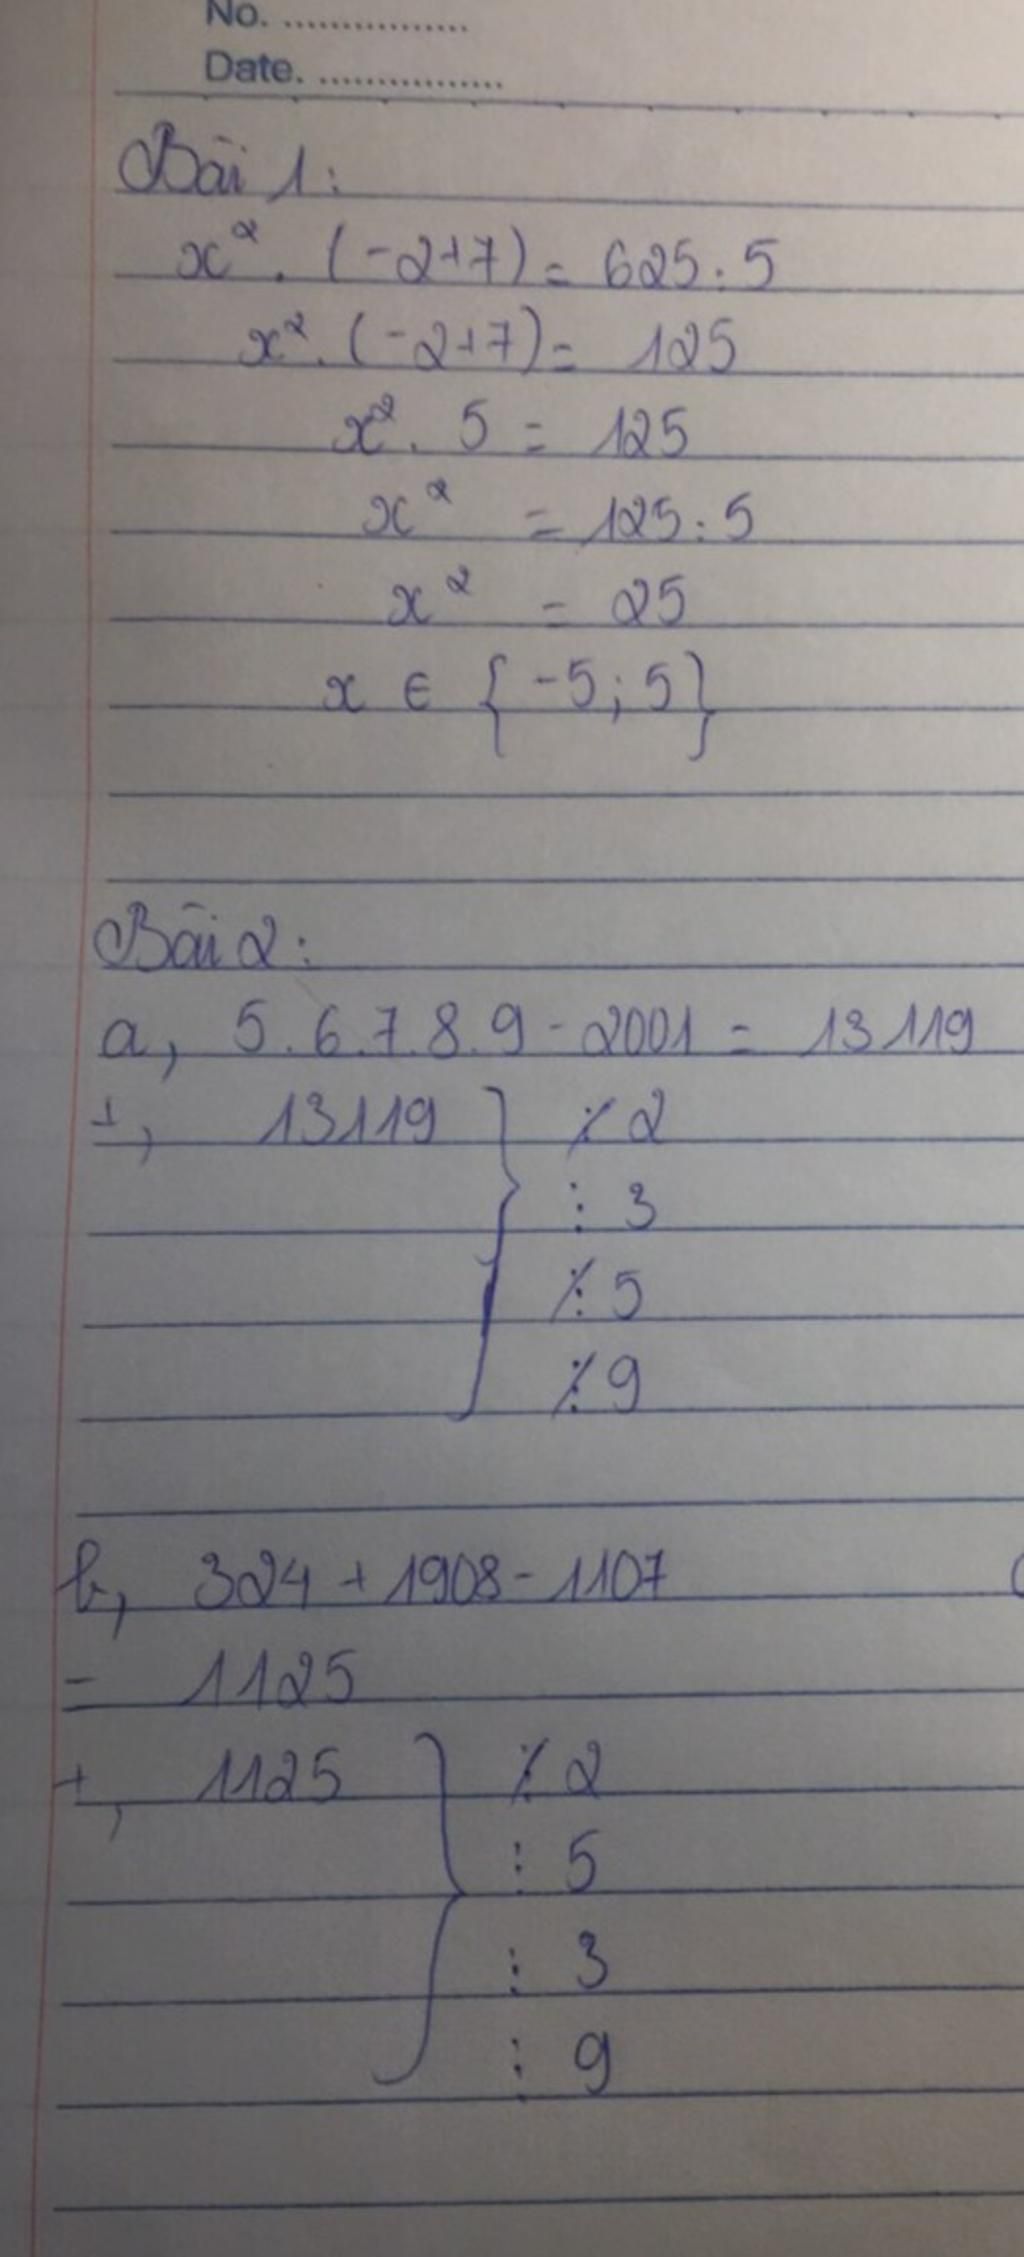 No. ................
Date. ................
Bài 1:
x². (-2+7) = 625:5
x². (-2+7) = 125
x². 5 = 125
x² = 125:5
x² = 25
x ∈ {-5; 5}
Bài 2:
a, 5.6.7.8.9 - 2001 = 13119
+, 13119 } ⋮̸ 2
⋮ 3
⋮̸ 5
⋮̸ 9
b, 324 + 1908 - 1107
= 1125
+, 1125 } ⋮̸ 2
⋮ 5
⋮ 3
⋮ 9